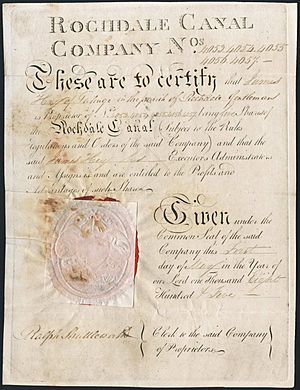 ROCHDALE CANAL
COMPANY Nos. 4053.4054.4055
4056.4057
These are to certify that James
in the parish of Rochdale Gentleman
is Proprietor of Nos being five Shares of
the Rochdale Canal (Subject to the Rules
regulations and Orders of the said Company) and that the
said James his Executors Administrators
and Assigns is and are entitled to the Profits and
Advantages of such Shares
Given under the
Common Seal of the said
Company this first
day of May in the Year of
our Lord one Thousand Eight
Hundred & five
Ralph Shuttleworth { Clerk to the said Company
of Proprietors